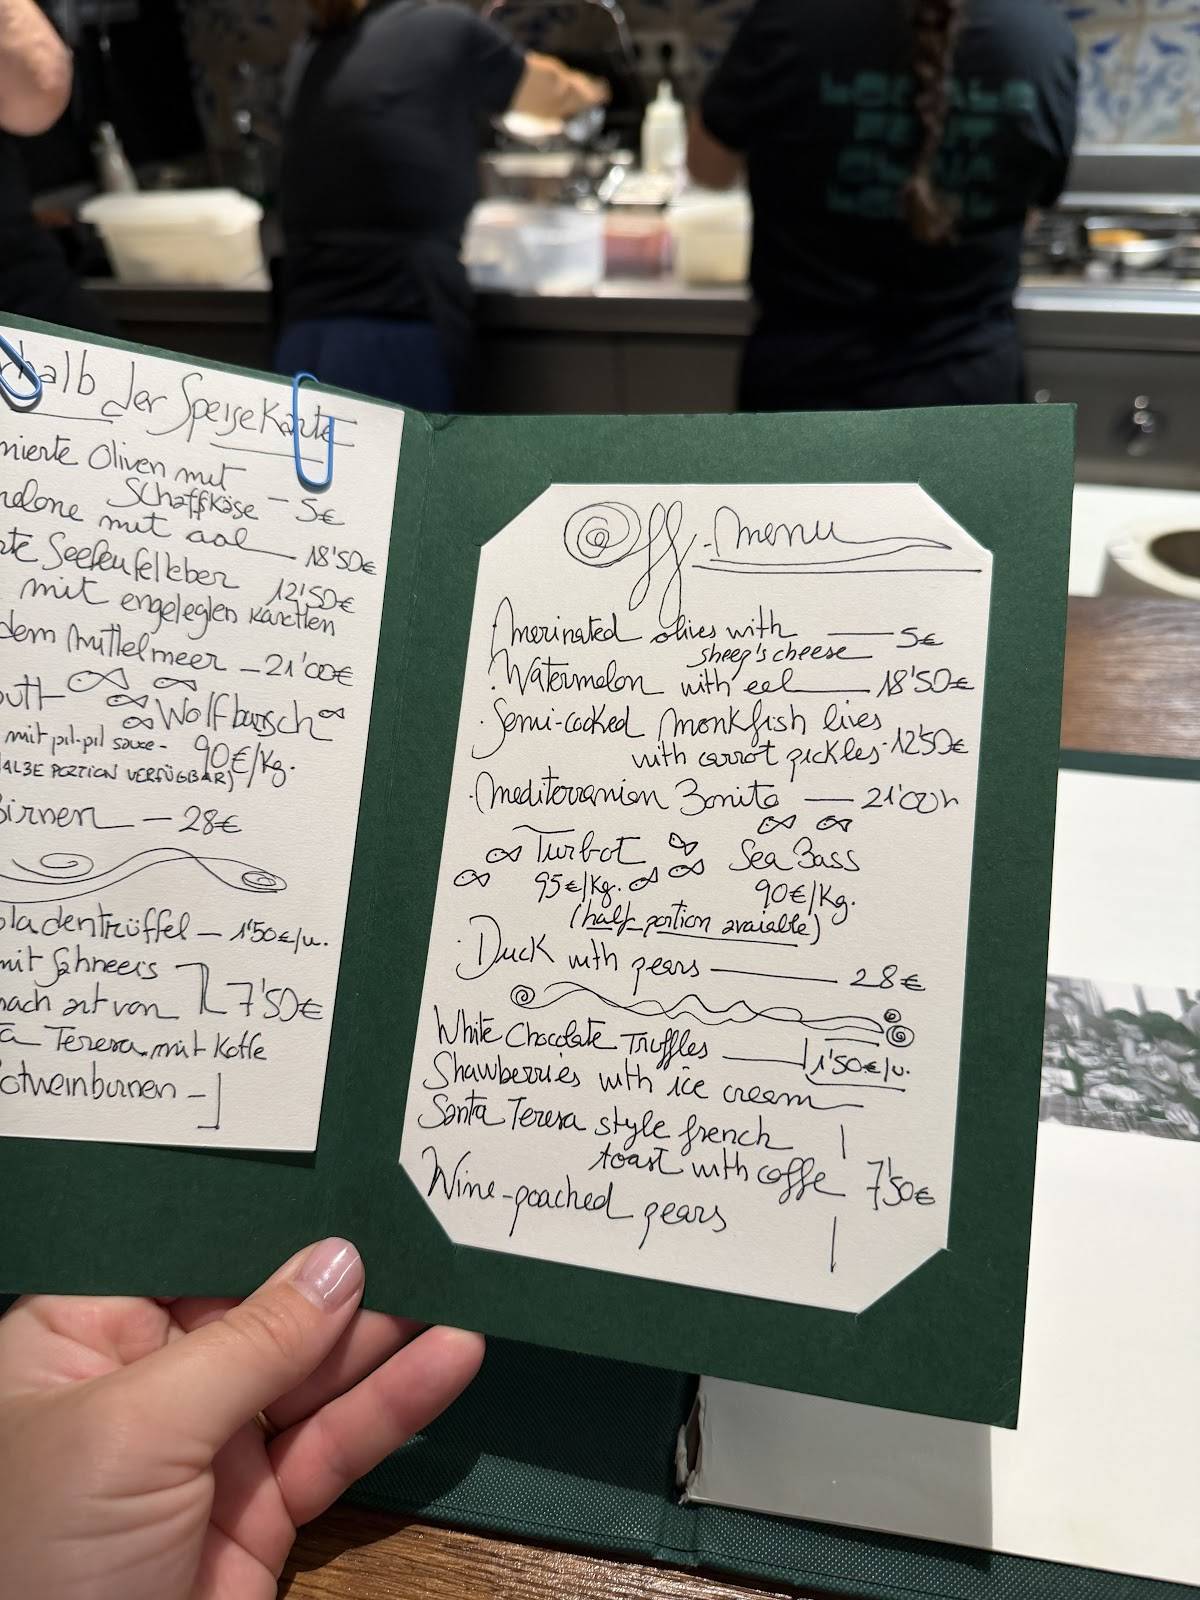 halb der Speisekarte
mierte Oliven mit
Schaffkäse - 5€
melone mit aal 18'50€
rte Seeteufelleber 12'50€
mit engelegten karotten
dem Mittelmeer - 21'00€
butt Wolfbarsch
mit pil-pil sauce - 90€/Kg.
(HALBE PORTION VERFÜGBAR)
Birnen - 28€
oladentrüffel - 1'50€/u.
mit Sahneeis
nach art von 7'50€
ta Teresa mit Kaffe
otweinbirnen -
Off-menu
Amerinated olives with 5€
sheep's cheese
·Watermelon with eel 18'50€
·Semi-cocked monkfish lives
with carrot pickles · 12'50€
·Mediterranian Bonito 21'00
Turbot Sea Bass
95€/Kg. 90€/Kg.
(half portion avaiable)
·Duck with pears 28€
White Chocolate Truffles 1'50€/u.
Shawberries with ice cream
Santa Teresa style french
toast with coffe 7'50€
Wine-poached pears